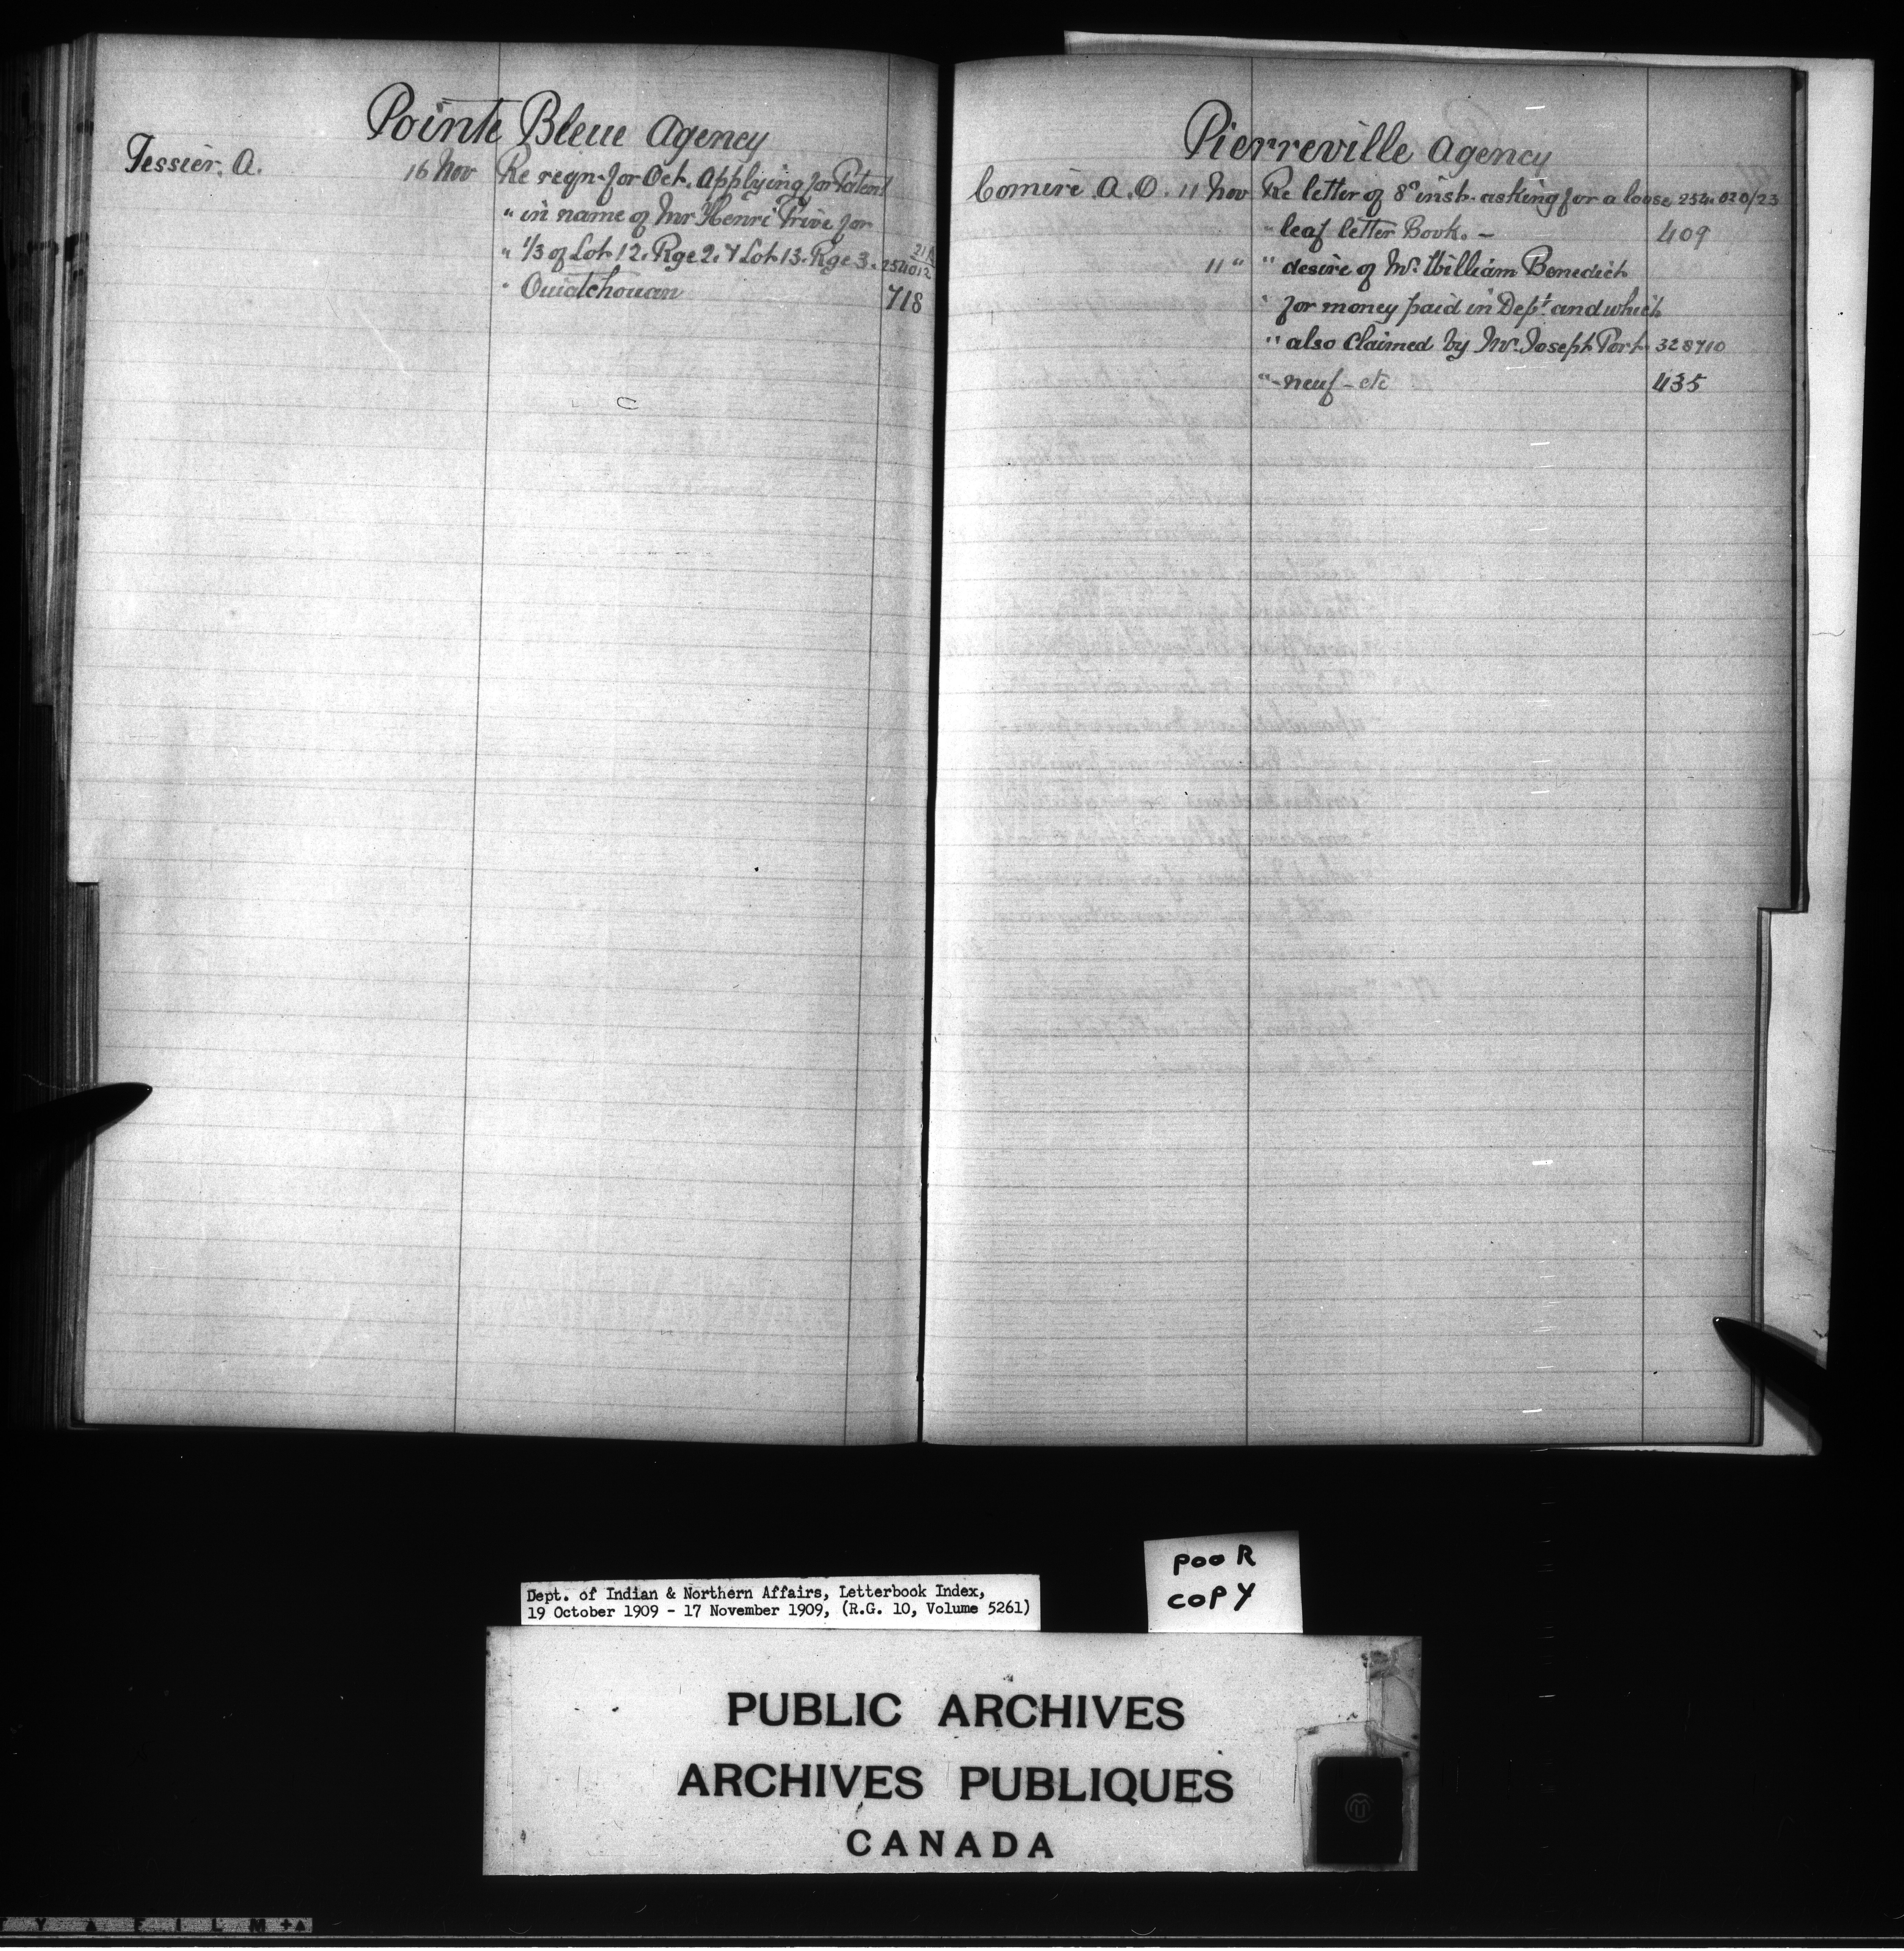 Pointe Bleue Agency
Tessier, A. 16 Nov Re regn. for Oct. Applying for Patent
" in name of Mr Henri Trive for
" 1/3 of Lot 12. Rge 2. & Lot 13. Rge 3. 254012
" Ouiatchouan 718
Pierreville Agency
Comiré A.O. 11 Nov Re letter of 8th inst. asking for a loose 254.020/23
" leaf letter Book. - 409
11 " " desire of Mr. William Benedict
" for money paid in Dept. and which
" also Claimed by Mr. Joseph Port- 328710
" -neuf - etc 435
Dept. of Indian & Northern Affairs, Letterbook Index,
19 October 1909 - 17 November 1909, (R.G. 10, Volume 5261)
pooR
copY
PUBLIC ARCHIVES
ARCHIVES PUBLIQUES
CANADA